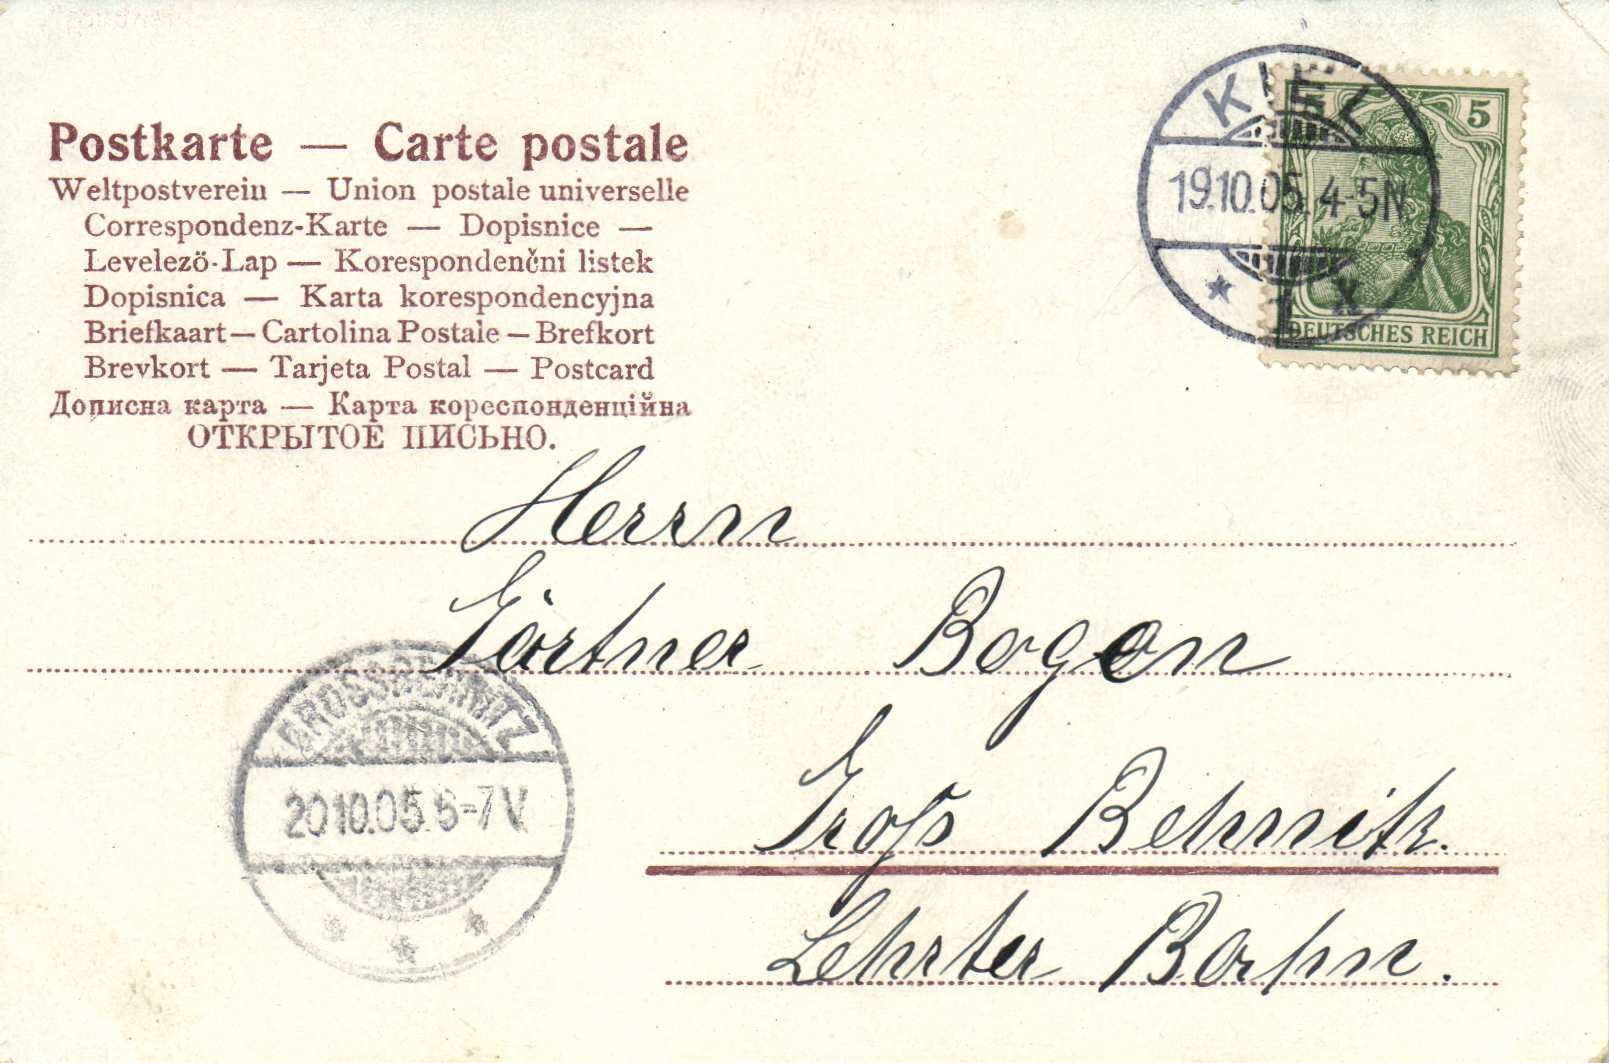 Postkarte — Carte postale
Weltpostverein — Union postale universelle
Correspondenz-Karte — Dopisnice —
Levelező-Lap — Korespondenčni listek
Dopisnica — Karta korespondencyjna
Briefkaart — Cartolina Postale — Brefkort
Brevkort — Tarjeta Postal — Postcard
Дописна карта — Карта кореспонденційна
ОТКРЫТОЕ ПИСЬНО.
KIEL
19.10.05. 4-5N.
* 1 x
5
DEUTSCHES REICH
Herrn
Gärtner Bogen
Groß Behnitz.
Lehrter Bahn.
GROSSBEHNITZ
20.10.05. 6-7V.
* * *